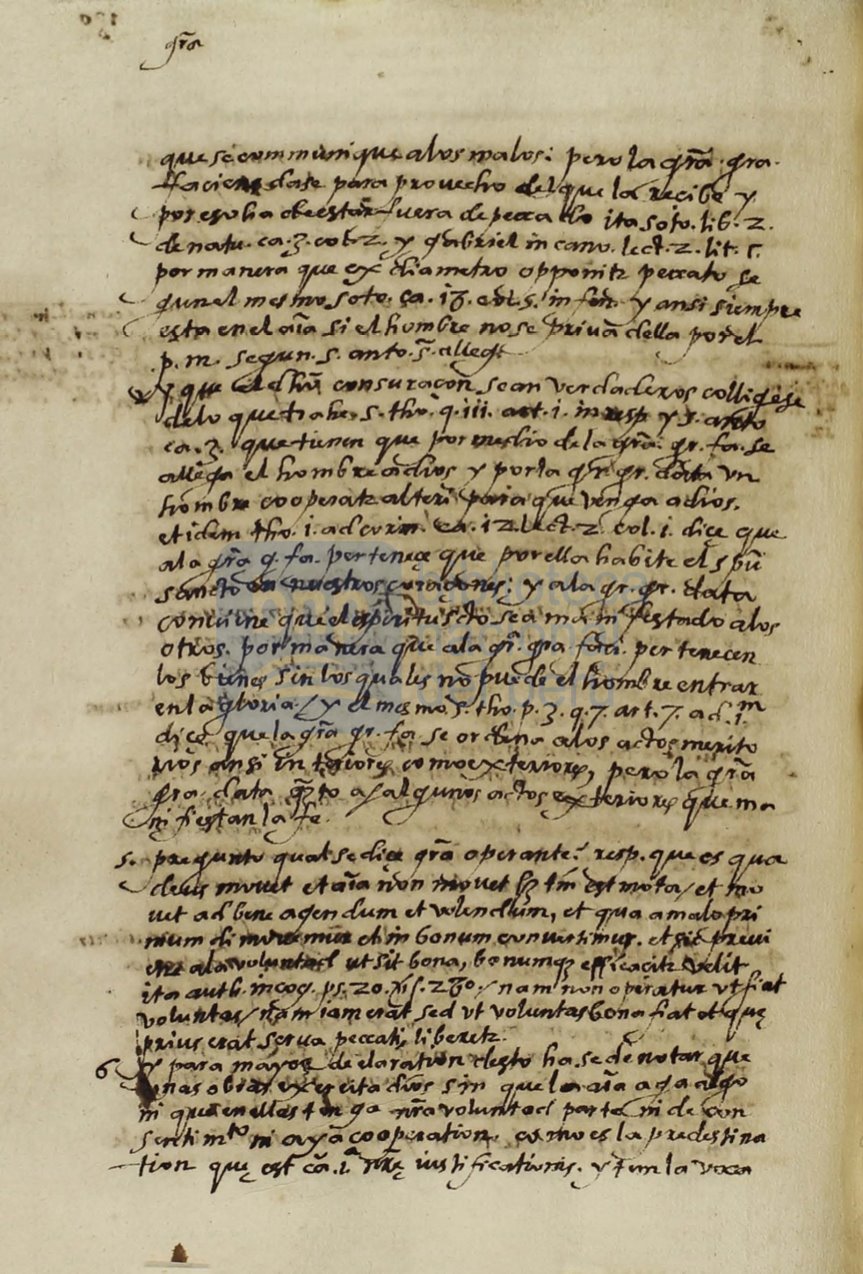 grã
que se communique a los malos: pero la grã. gra.
faciens dase para provecho del que la recibe y
por eso ha de estar fuera de peccado ita soto. lib. 2.
de natu. ca. 3. y gabriel in cano. lect. 2. lit. s.
por manera que ex diametro opponitr peccato se
gun el mesmo soto. ca. 18. y ansi siempre
esta en el aĩa si el hombre no se priva della por el
p. m. segun. s. anto.
y que sean verdaderos collígese
de lo que trahe. s. tho. q. iii. art. i. in resp y s. anto
ca. 3. que tienen que por medio de la grã. gr. fa. se
allega el hombre a dios y por la gr. gr. data un
hombre cooperatr alteri para que venga a dios.
et idem tho. i. ad corin. ca. 12. lect. 2. col. i. diçe que
a la grã g. fa. perteneçe que por ella habite el spũ
sancto en nuestros coraçones: y a la gr. gr. data
conviene que el spiritu scto sea manifestado a los
otros. por manera que a la gr. gra. faci. pertenecen
los bienes sin los quales no puede el hombre entrar
en la gloria / y el mesmo s. tho. p. 3. q. 7. art. 7. ad. i.m
diçe que la grã gr. fa. se ordena a los actos merito
rios ansi interiores como exteriores, pero la grã
gra. data a algunos actos exteriores que ma
nifiestan la fe.
5. pregunto qual se diçe grã operante? resp. que es qua
deus movet et aĩa non movet sz tm̃ est mota / et mo
vet ad bene agendum et volendum, et qua a malo pri
mum dimovemur et in bonum convertimur. et sic previ
ene a la voluntad ut sit bona, bonumqz efficacitr velit
ita autb. in coq. ps. 20. / nam non operatur ut fiat
voluntas / nam iam erat sed ut voluntas bona fiat et quę
prius erat serva peccati, liberetr.
6 y para mayor declaration desto ha se de notar que
unas obras exercita dios sin que la aĩa aga algo
ni que en ellas tenga nr̃a voluntad parte ni de con
sentimto ni aya cooperation, como es la predestina
tion quę est cã. i.a nr̃ę iustificationis. y tem la voca